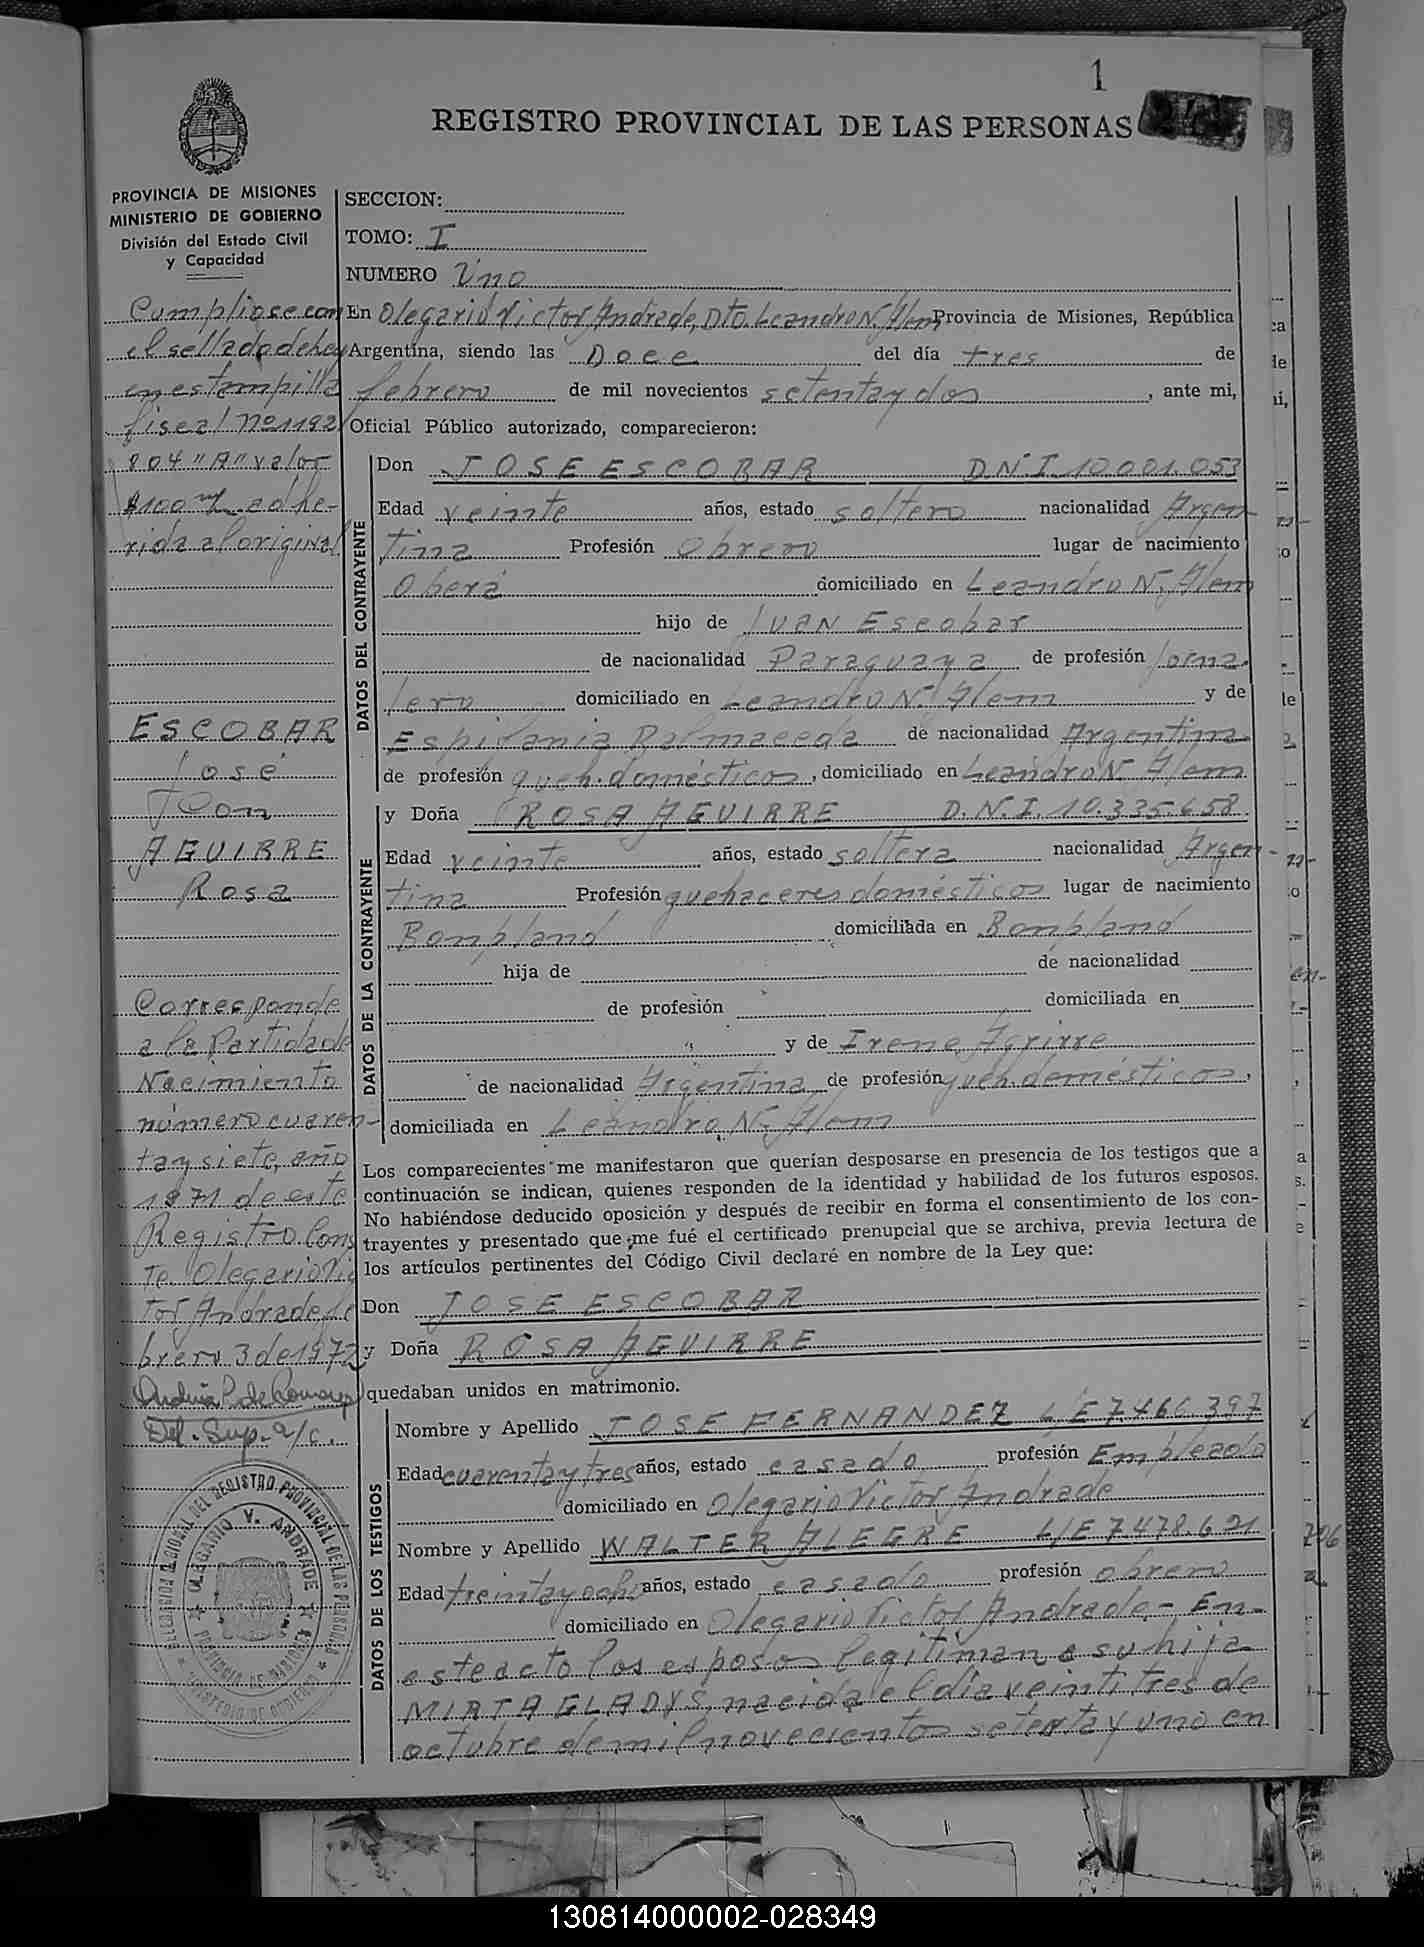 1
REGISTRO PROVINCIAL DE LAS PERSONAS
PROVINCIA DE MISIONES
MINISTERIO DE GOBIERNO
División del Estado Civil
y Capacidad
Cumpliose con
el sellado de ley
en estampilla
fiscal nº 1192
804 "A" valor
$100 m/n adhe-
rida al original
ESCOBAR
José
Con
AGUIRRE
Rosa
Corresponde
a la Partida de
Nacimiento
número cuaren-
ta y siete, año
1971 de este
Registro Cons
te. Olegario Vic
tor Andrade, fe
brero 3 de 1972
Del. Sup. a/c.
DELEGACION SECCIONAL DEL REGISTRO PROVINCIAL DE LAS PERSONAS
OLEGARIO V. ANDRADE
PROVINCIA DE MISIONES
MINISTERIO DE GOBIERNO
SECCION:
TOMO: I
NUMERO Uno
En Olegario Victor Andrade, Dto. Leandro N. Alem Provincia de Misiones, República
Argentina, siendo las Doce del día tres de
febrero de mil novecientos setenta y dos, ante mi,
Oficial Público autorizado, comparecieron:
DATOS DEL CONTRAYENTE
Don JOSE ESCOBAR D.N.I. 10.001.053
Edad veinte años, estado soltero nacionalidad Argen
tina Profesión Obrero lugar de nacimiento
Oberá domiciliado en Leandro N. Alem
hijo de Juan Escobar
de nacionalidad Paraguaya de profesión Jorna
lero domiciliado en Leandro N. Alem y de
Espidania Balmaceda de nacionalidad Argentina
de profesión queh. domésticos, domiciliado en Leandro N. Alem
DATOS DE LA CONTRAYENTE
y Doña ROSA AGUIRRE D.N.I. 10.335.658
Edad veinte años, estado soltera nacionalidad Argen-
tina Profesión quehaceres domésticos lugar de nacimiento
Bonpland domiciliada en Bonpland
hija de de nacionalidad
de profesión domiciliada en
y de Irene Agirre
de nacionalidad Argentina de profesión queh. domésticos,
domiciliada en Leandro N. Alem
Los comparecientes me manifestaron que querían desposarse en presencia de los testigos que a
continuación se indican, quienes responden de la identidad y habilidad de los futuros esposos.
No habiéndose deducido oposición y después de recibir en forma el consentimiento de los con-
trayentes y presentado que me fué el certificado prenupcial que se archiva, previa lectura de
los artículos pertinentes del Código Civil declaré en nombre de la Ley que:
Don JOSE ESCOBAR
y Doña ROSA AGUIRRE
quedaban unidos en matrimonio.
DATOS DE LOS TESTIGOS
Nombre y Apellido JOSE FERNANDEZ L/E 7.466.397
Edad cuarenta y tres años, estado casado profesión Empleado
domiciliado en Olegario Victor Andrade
Nombre y Apellido WALTER ALEGRE L/E 7.478.621
Edad treinta y ocho años, estado casado profesión obrero
domiciliado en Olegario Victor Andrade.- En
este acto los esposos legitiman a su hija
MIRTA GLADYS, nacida el dia veinti tres de
octubre de mil novecientos setenta y uno en
130814000002-028349